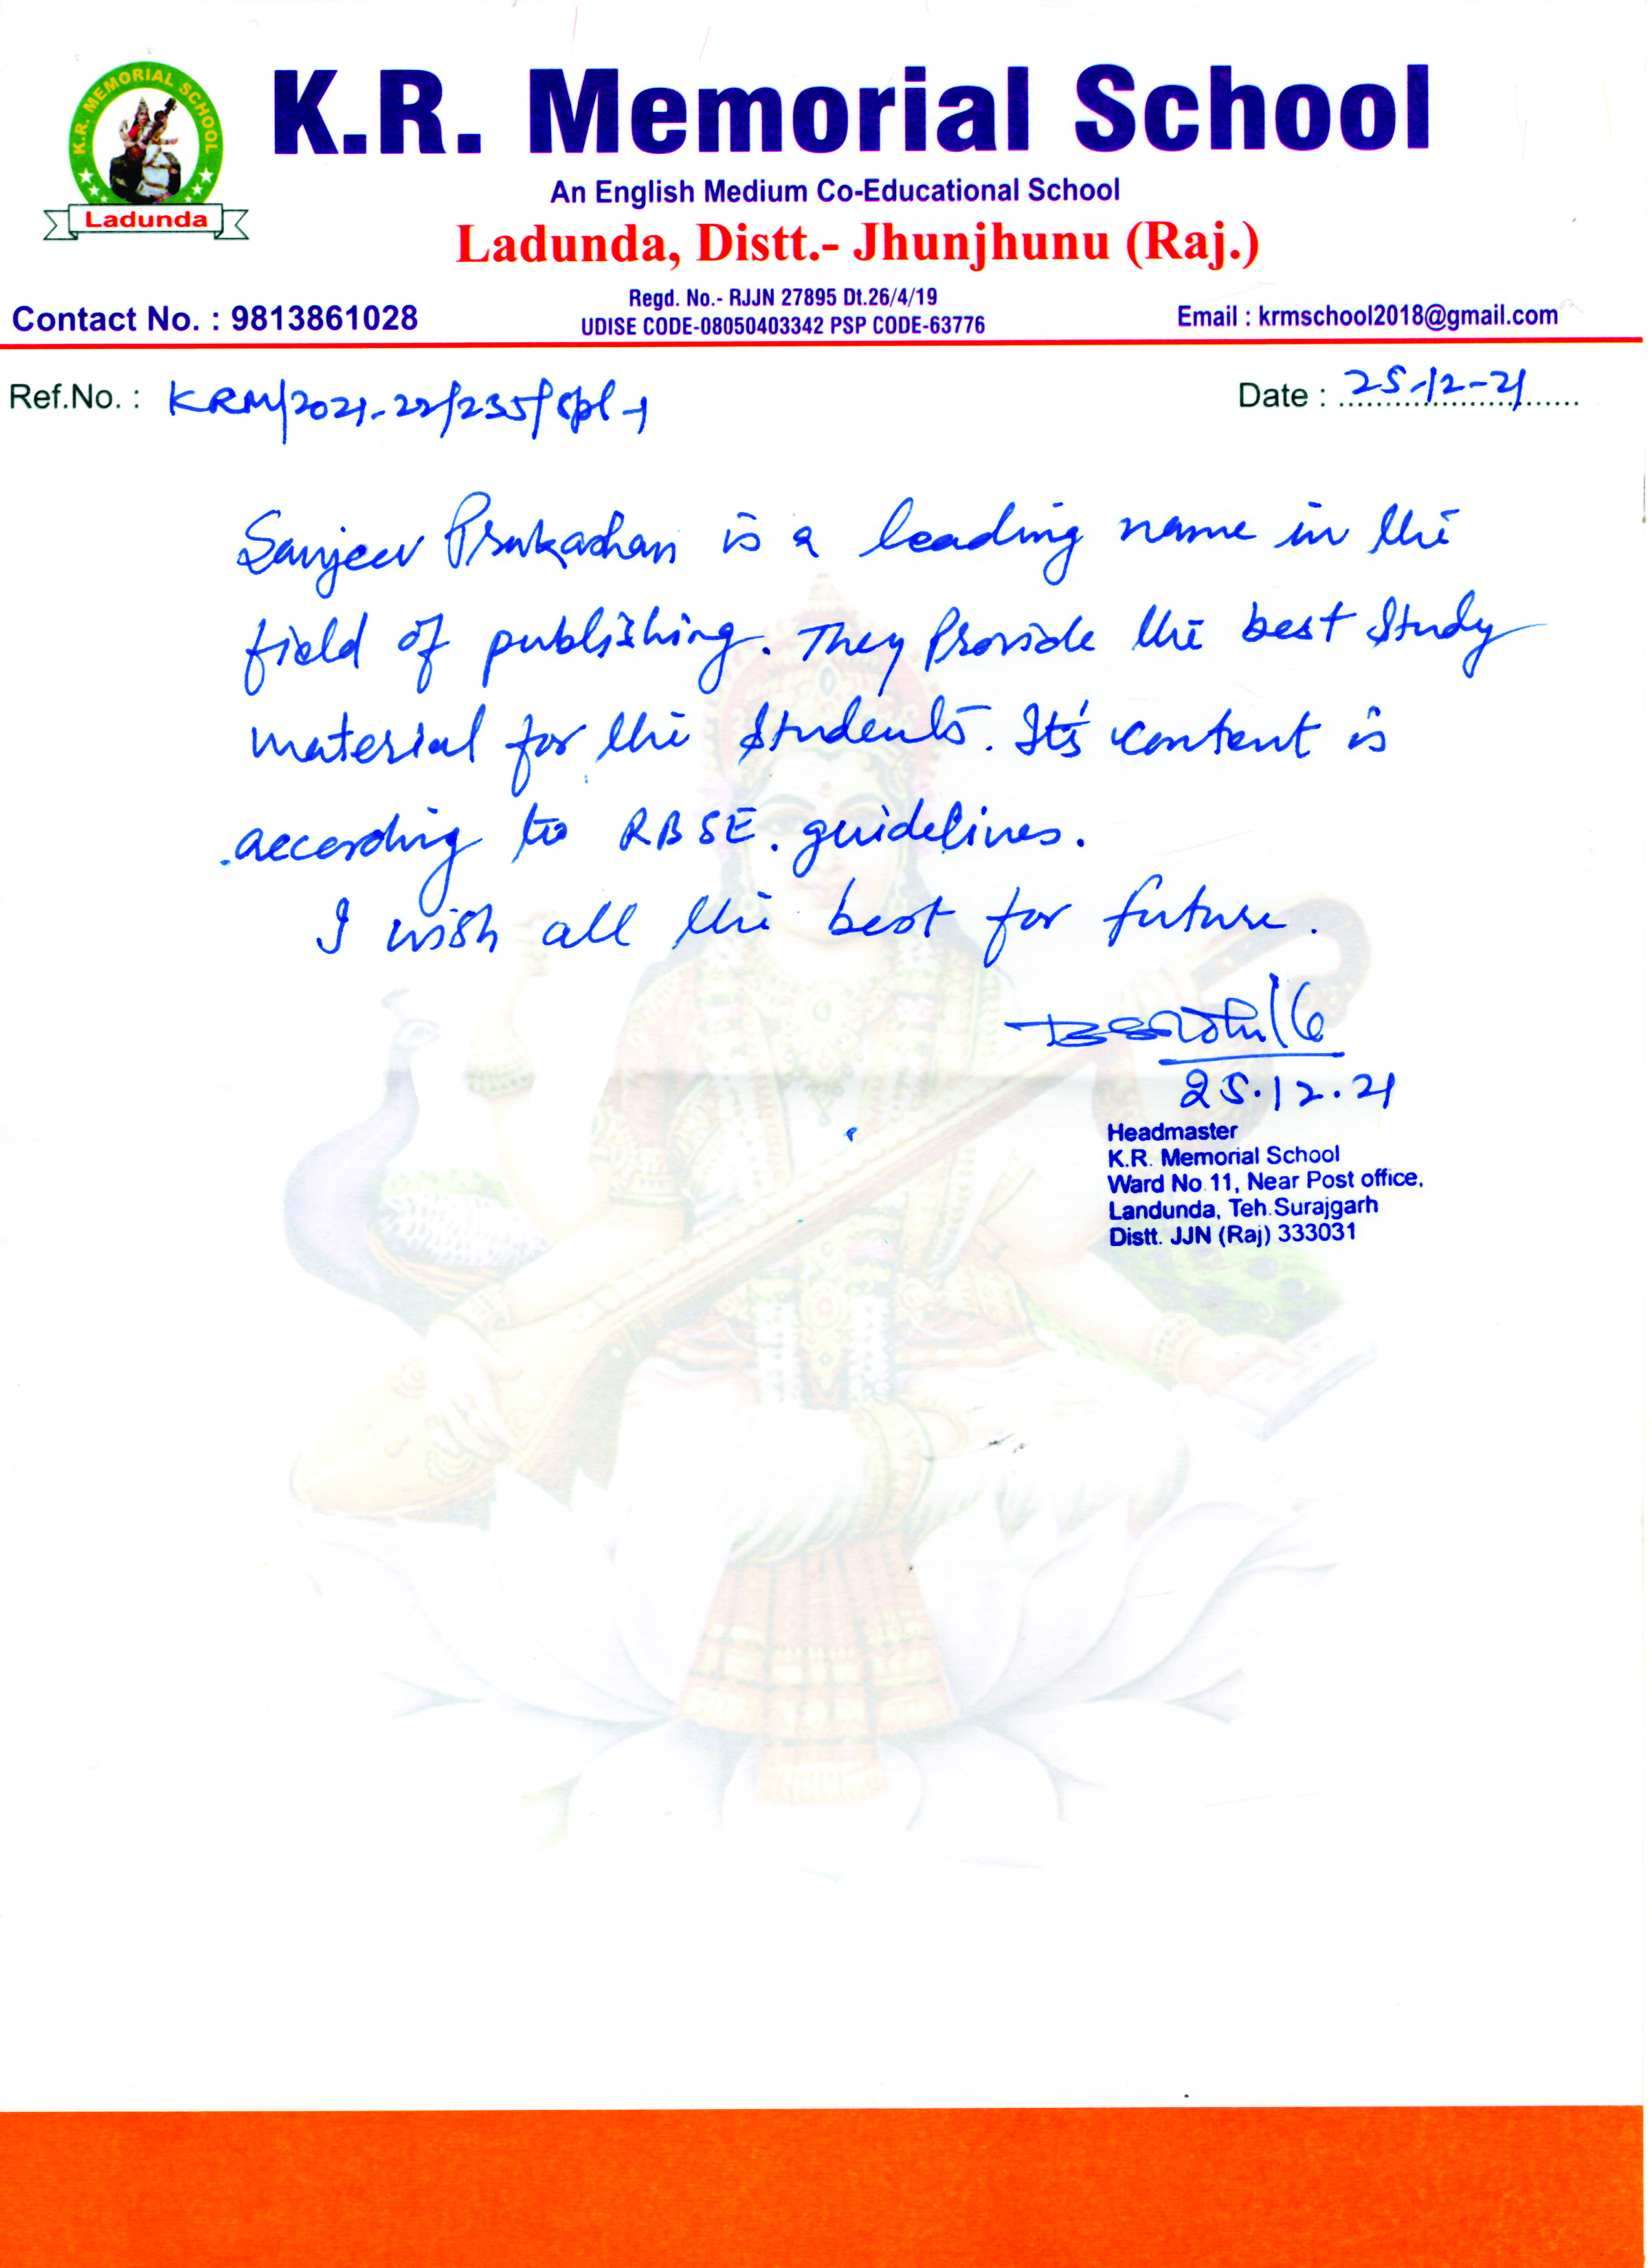 K.R. MEMORIAL SCHOOL
Ladunda
K.R. Memorial School
An English Medium Co-Educational School
Ladunda, Distt.- Jhunjhunu (Raj.)
Contact No. : 9813861028
Regd. No.- RJJN 27895 Dt.26/4/19
UDISE CODE-08050403342 PSP CODE-63776
Email : krmschool2018@gmail.com
Ref.No. : KRM/2021-22/235/Spl-1
Date : 25-12-21
Sanjeev Prakashan is a leading name in the
field of publishing. They Provide the best Study
material for the students. It's content is
according to RBSE. guidelines.
I wish all the best for future.
25.12.21
Headmaster
K.R. Memorial School
Ward No.11, Near Post office,
Landunda, Teh.Surajgarh
Distt. JJN (Raj) 333031